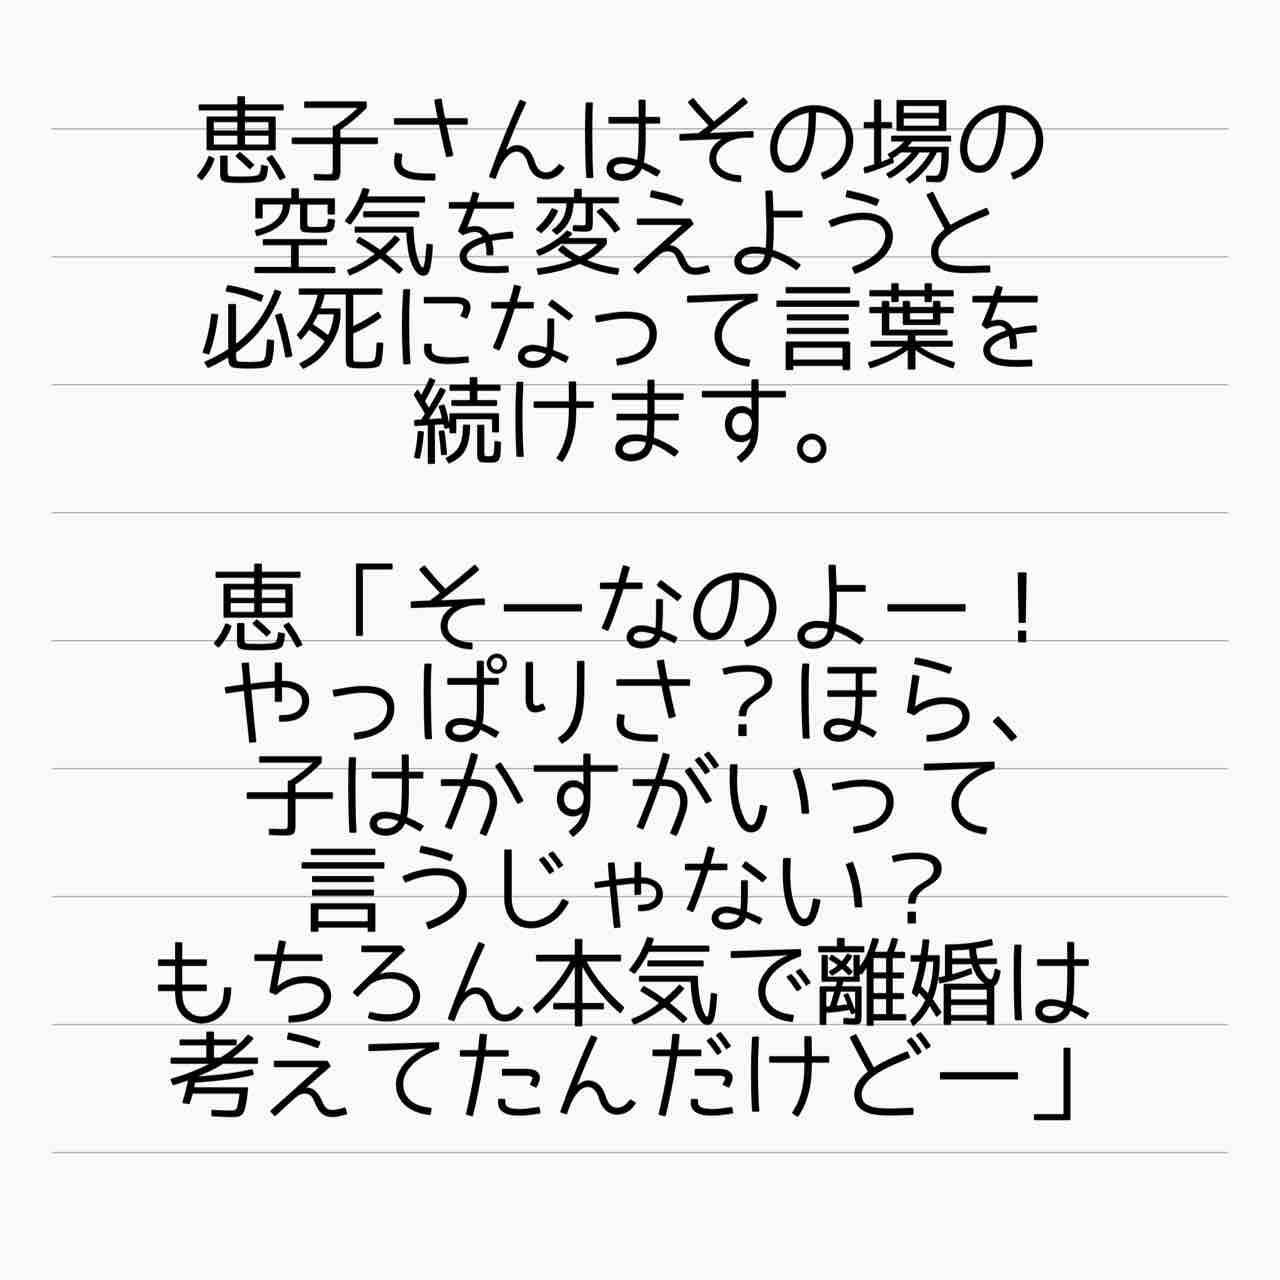 恵子さんはその場の
空気を変えようと
必死になって言葉を
続けます。
恵「そーなのよー！
やっぱりさ？ほら、
子はかすがいって
言うじゃない？
もちろん本気で離婚は
考えてたんだけどー」